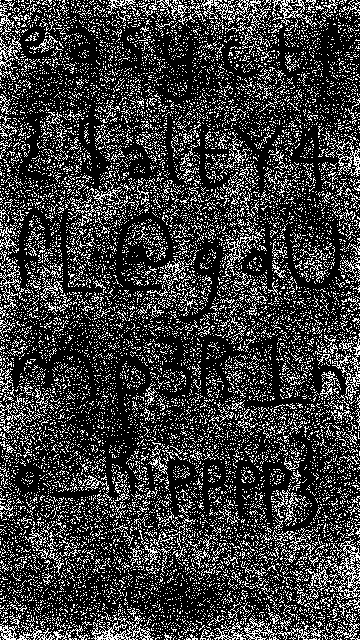 easyctf
{$altY4
fL@gdU
mp3R1n
o_hipppp}